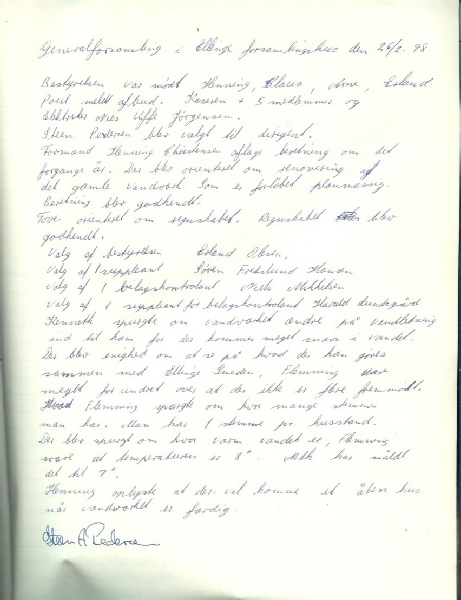 Generalforsamling i Ellinge forsamlingshus den 26/2-98
Bestyrelsen var mødt Henning, Claus, Arne, Erland
Poul meldt afbud. Kasseren + 5 medlemmer og
Elektriker Uffe Jörgensen.
Steen Pedersen blev valgt til dirigent.
Formand Henning Christensen aflagde beretning om det
forgangne år. Der blev orienteret om renovering af
det gamle vandværk som er forløbet planmæssig.
Beretning blev godkendt.
Tove orienteret om regnskabet. Regnskabet blev
godkendt.
Valg af bestyrelsen Erland Olsen,
Valg af 1 suppleant Sören Fredslund Hansen
Valg af 1 bilagskontrolant Niels Mikkelsen
Valg af 1 suppleant for bilagskontrolant Harald Lundsgård
Kenneth spurgte om vandværket ændre på vandledning
ind til ham for der kommer meget snavs i vandet.
Der blev enighed om at se på hvad der kan gøres
sammen med Ellinge Smeden, Flemming var
meget forundret over at der ikke er flere fremmødt.
Flemming spurgte om hvor mange stemme
man har. Man har 1 stemme pr. husstand.
Der blev spurgt om hvor varm vandet er, Flemming
svare at temperaturen er 8°. har måldt
det til 7°.
Henning oplyste at der vil komme et åben hus
når vandværket er færdig.
Steen A Pedersen